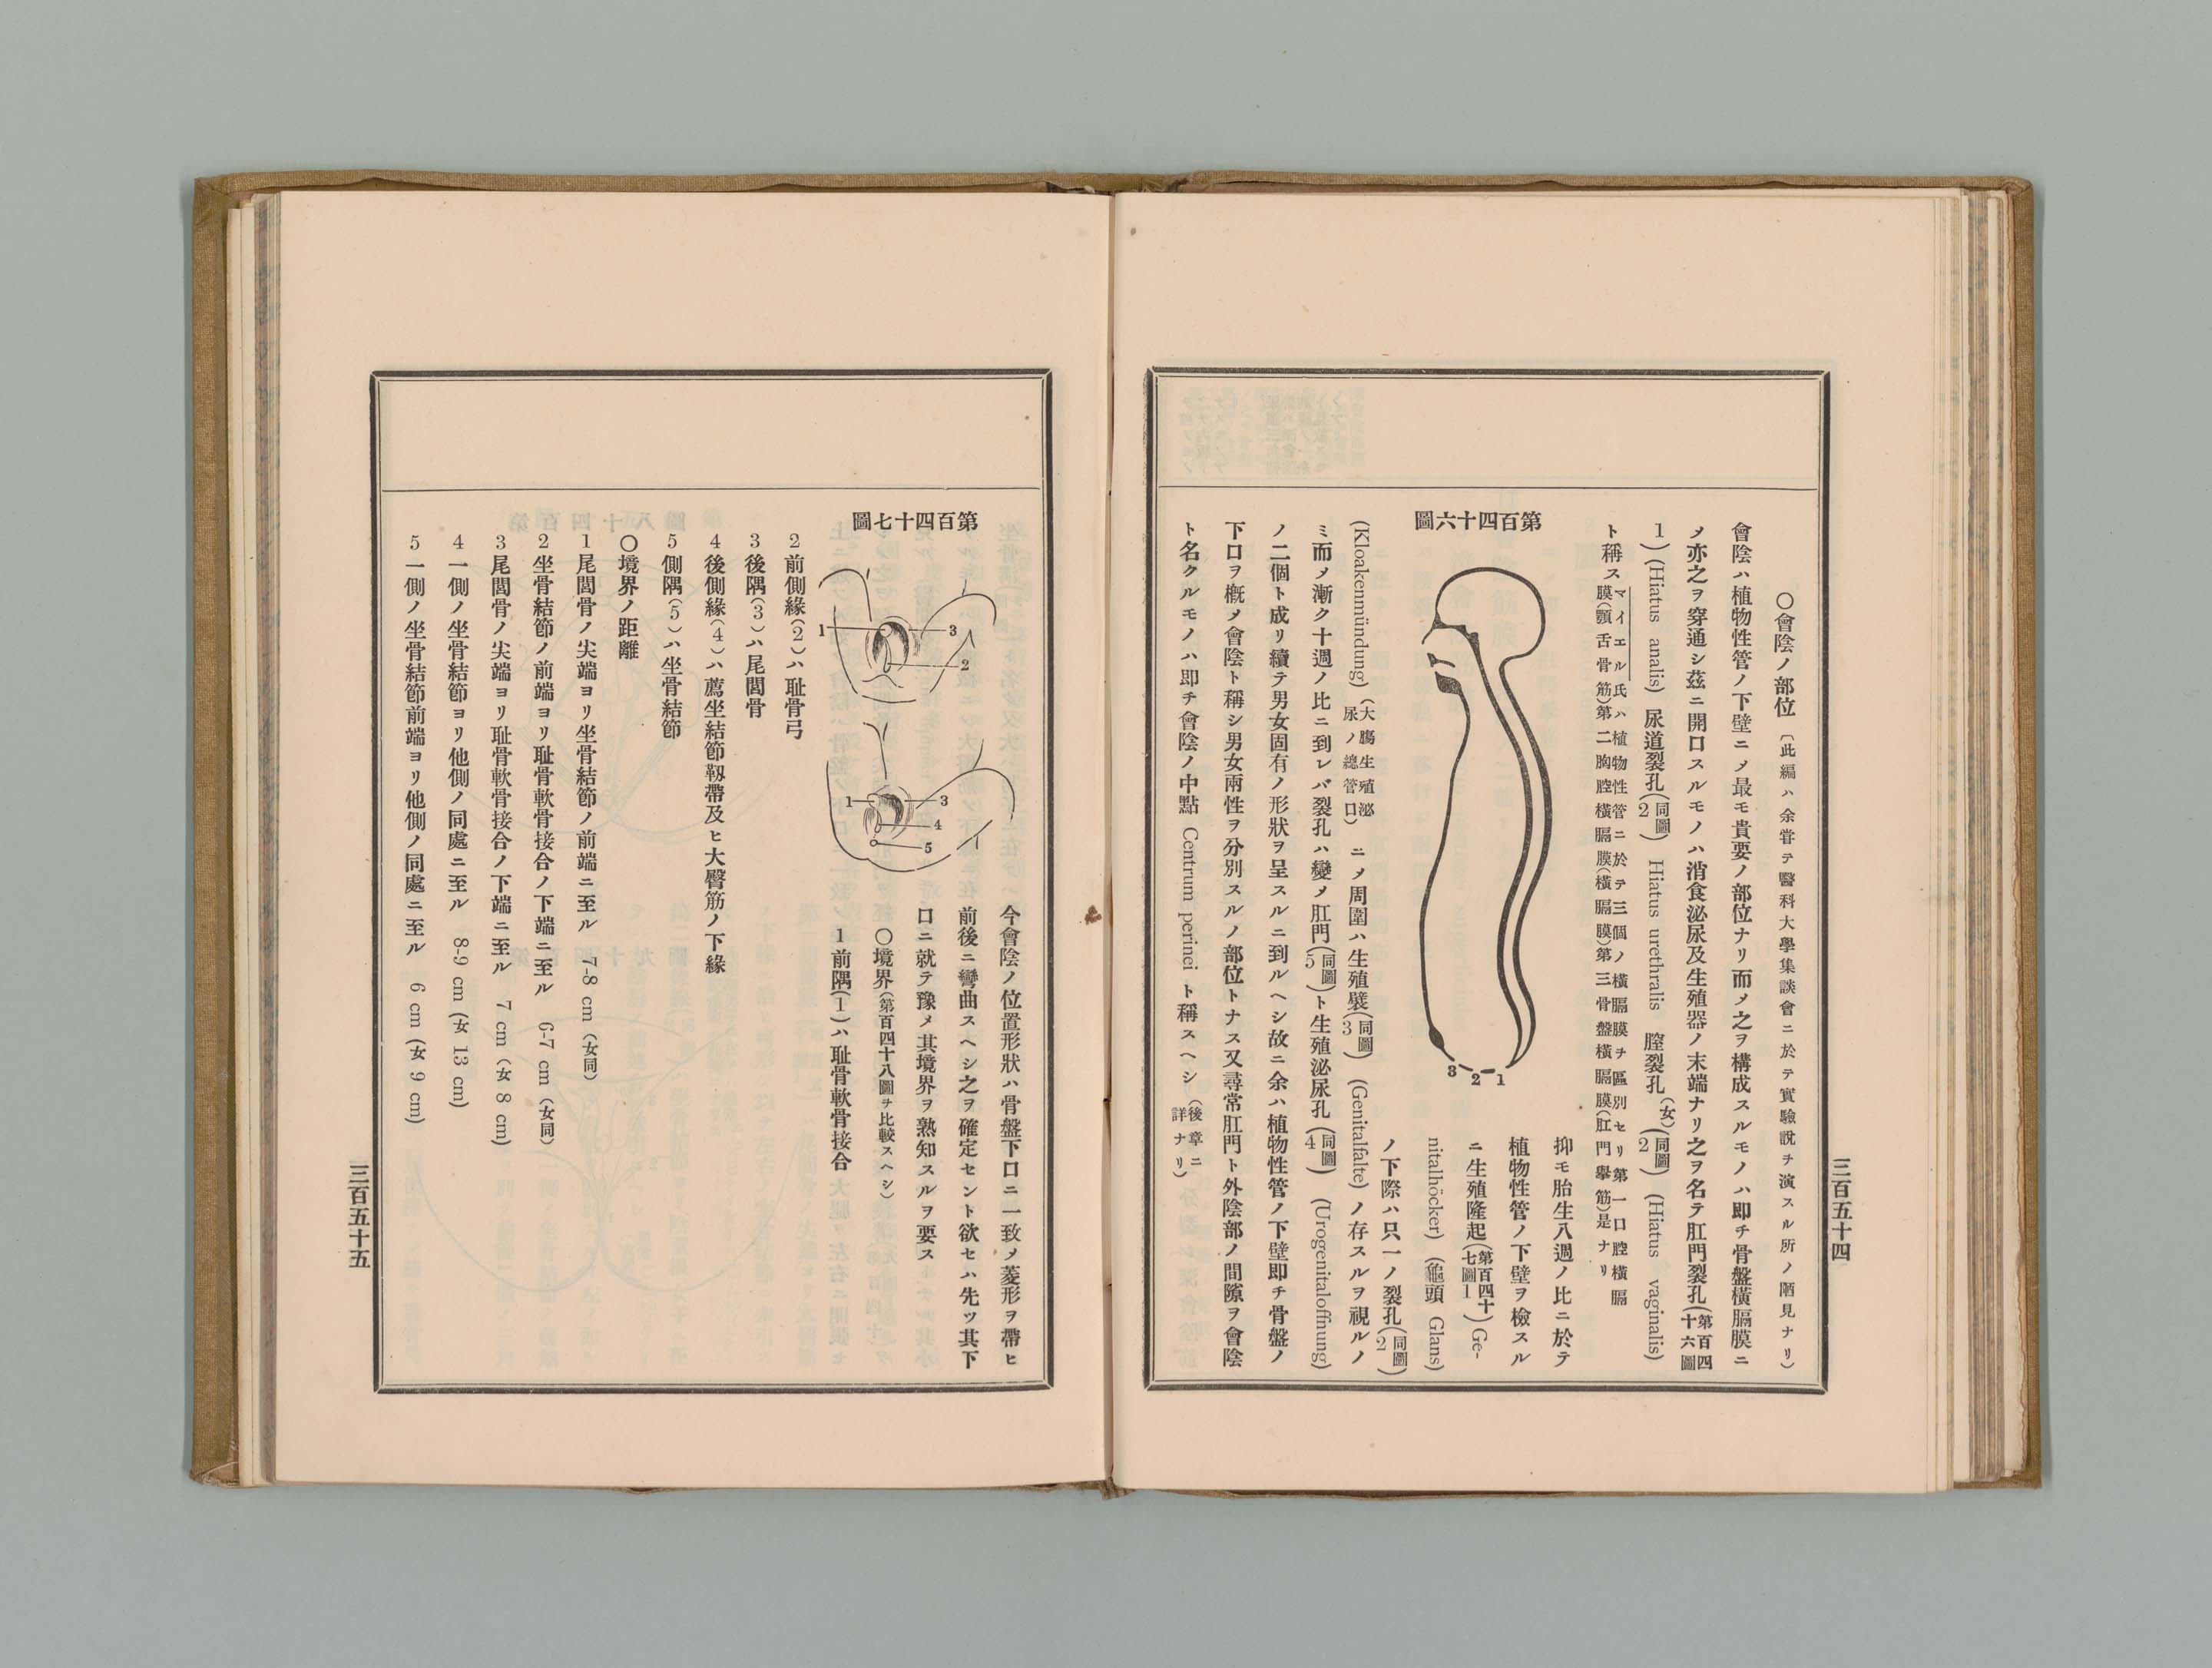 三百五十四
〇會陰ノ部位（此編ハ余嘗テ醫科大學集談會ニ於テ實驗說ヲ演スル所ノ陋見ナリ）
會陰ハ植物性管ノ下壁ニメ最モ貴要ノ部位ナリ而メ之ヲ構成スルモノハ即チ骨盤橫膈膜ニ
メ亦之ヲ穿通シ茲ニ開口スルモノハ消食泌尿及生殖器ノ末端ナリ之ヲ名テ肛門裂孔(第百四十六圖
1）(Hiatus analis) 尿道裂孔(同圖2）Hiatus urethralis 膣裂孔（女）(同圖2）(Hiatus vaginalis)
ト稱ス マイエル氏ハ植物性管ニ於テ三個ノ橫膈膜ヲ區別セリ第一口腔橫膈膜(顎舌骨筋)第二胸腔橫膈膜(橫膈膜)第三骨盤橫膈膜(肛門擧筋)是ナリ
第百四十六圖
1
2
3
抑モ胎生八週ノ比ニ於テ
植物性管ノ下壁ヲ檢スル
ニ生殖隆起(第百四十七圖1）Ge-
nitalhöcker) (龜頭 Glans)
ノ下際ハ只一ノ裂孔(同圖2）
(Kloakenmündung)（大膓生殖泌尿ノ總管口）ニメ周圍ハ生殖襞(同圖3）(Genitalfalte) ノ存スルヲ視ルノ
ミ而メ漸ク十週ノ比ニ到レバ裂孔ハ變メ肛門(同圖5）ト生殖泌尿孔(同圖4）(Urogenitaloffnung)
ノ二個ト成リ續テ男女固有ノ形狀ヲ呈スルニ到ルヘシ故ニ余ハ植物性管ノ下壁即チ骨盤ノ
下口ヲ概メ會陰ト稱シ男女兩性ヲ分別スルノ部位トナス又尋常肛門ト外陰部ノ間隙ヲ會陰
ト名クルモノハ即チ會陰ノ中點 Centrum perinei ト稱スヘシ（後章ニ詳ナリ）
第百四十七圖
1
2
3
1
3
4
5
今會陰ノ位置形狀ハ骨盤下口ニ一致メ菱形ヲ帶ヒ
前後ニ彎曲スヘシ之ヲ確定セント欲セハ先ツ其下
口ニ就テ豫メ其境界ヲ熟知スルヲ要ス
〇境界（第百四十八圖ヲ比較スヘシ）
1 前隅(1)ハ耻骨軟骨接合
2 前側緣(2)ハ耻骨弓
3 後隅(3)ハ尾閭骨
4 後側緣(4)ハ薦坐結節靱帶及ヒ大臀筋ノ下緣
5 側隅(5)ハ坐骨結節
〇境界ノ距離
1 尾閭骨ノ尖端ヨリ坐骨結節ノ前端ニ至ル 7-8 cm（女同）
2 坐骨結節ノ前端ヨリ耻骨軟骨接合ノ下端ニ至ル 6-7 cm（女同）
3 尾閭骨ノ尖端ヨリ耻骨軟骨接合ノ下端ニ至ル 7 cm（女 8 cm)
4 一側ノ坐骨結節ヨリ他側ノ同處ニ至ル 8-9 cm（女 13 cm)
5 一側ノ坐骨結節前端ヨリ他側ノ同處ニ至ル 6 cm（女 9 cm)
三百五十五